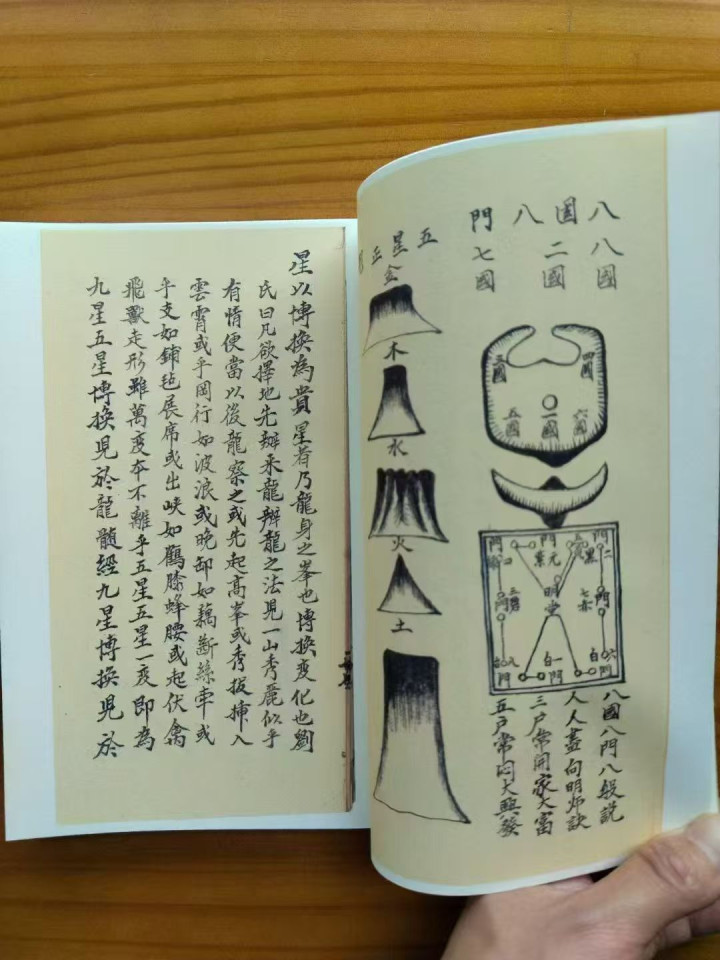 八國八門
八國
二國
七國
四國
三國
六國
一國
五國
門
門
二
元
紫
黑
門
明堂
七赤
門
門
九
一白
門
六白
門
八國八門八般說
人人盡向明師訣
三戶常開家大富
五戶常閉大興發
五星正形
金
木
水
火
土
星以博換為貴星者乃龍身之峯也博換变化也劉
氏曰凡欲擇地先辦来龍辨龍之法見一山秀麗似乎
有情便當以後龍察之或先起高峯或秀拔揷入
雲霄或乎岡行如波浪或晚卸如藕断絲牽或
乎支如鋪毡展席或出峽如鶴膝蜂腰或起伏禽
飛獸走形雖萬变夲不離乎五星五星一变即為
九星五星博換見於龍髓經九星博換見於